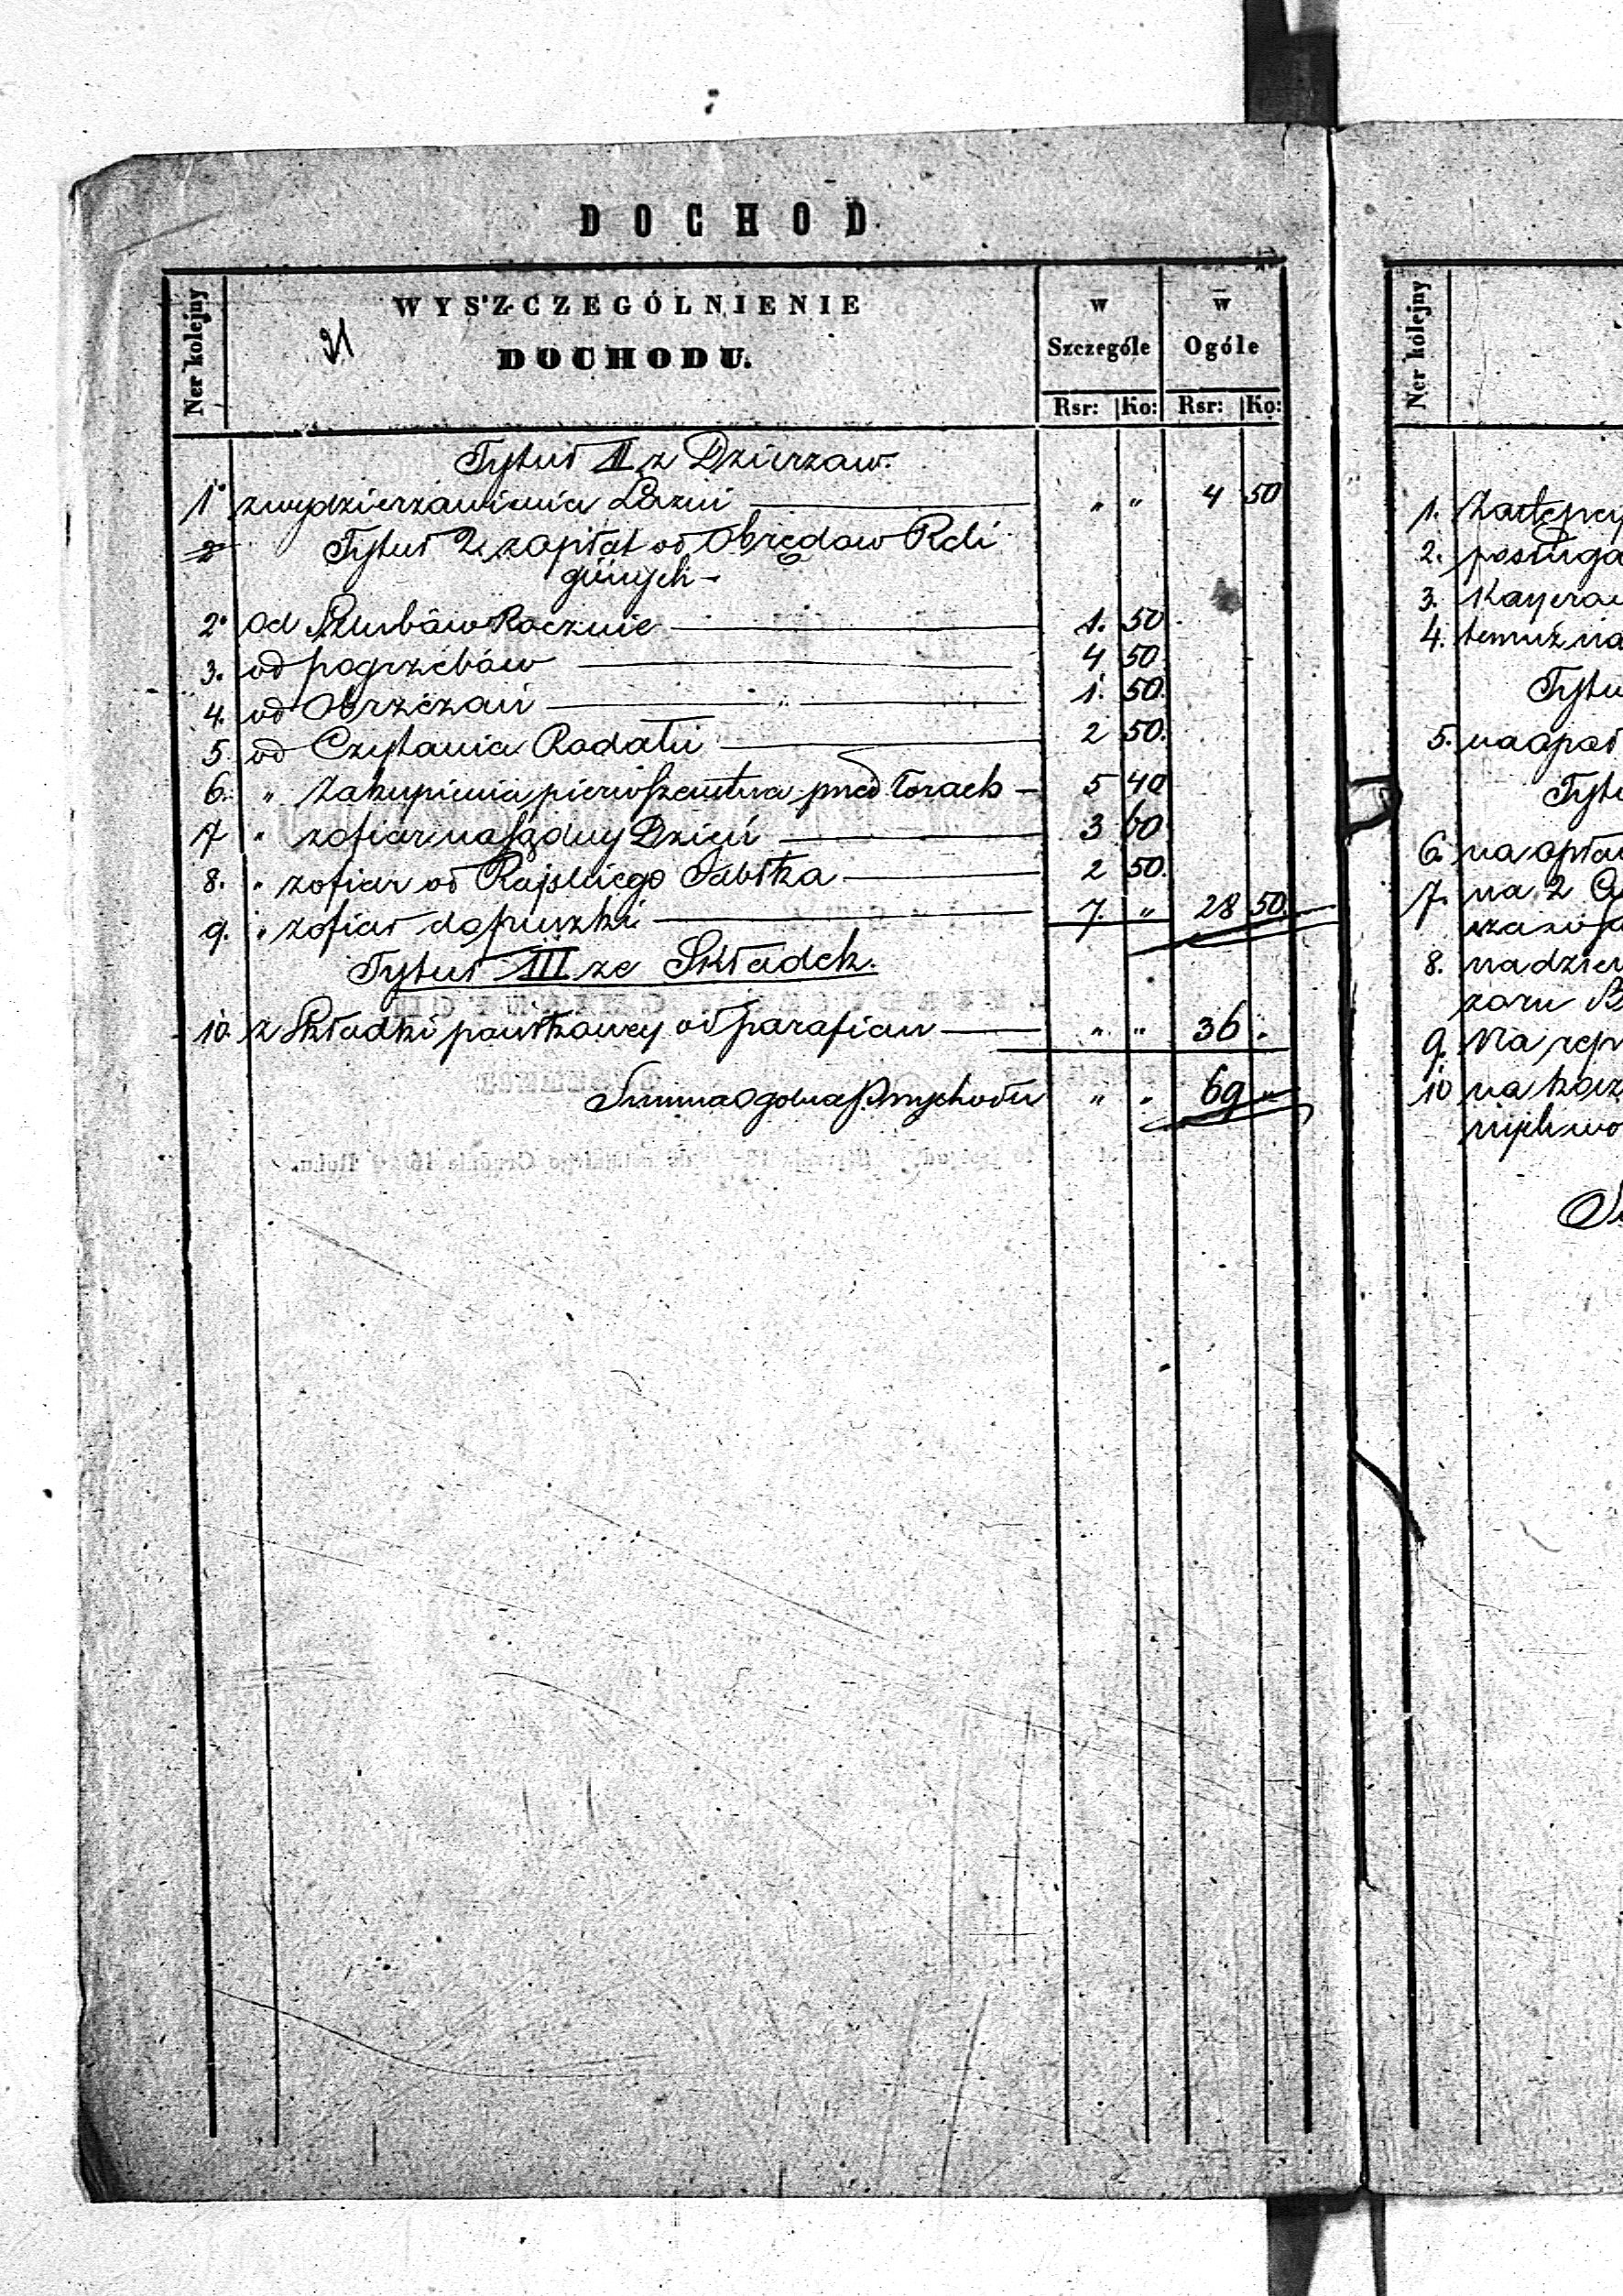 DOCHOD
Ner kolejny
WYSZCZEGÓLNIENIE
DOCHODU.
21
w Szczególe
w Ogóle
Rsr: Ko: Rsr: Ko:
Tytuł II z Dzierzaw.
1. z wydzierzawienia Lazni „ „ 4 50
Tytuł 2 z zapłat od Obrzędow Reli
giinych -
2. od Szlubów Rocznie 1. 50
3. od pogrzebów 4 50
4. od Obrzezań 1. 50.
5 od Czytania Rodału 2 50.
6. „ Zakupienia pierwszeństwa przed Torach 5 40
7 „ z ofiar na Sądny Dzień 3 60
8. „ z ofiar od Rajskiego Jabłka 2 50.
9. „ z ofiar do puszki 7. „ 28 50.
Tytuł III ze Składek.
10. z Składki od parafian „ „ 36 .
Summa Ogolna Przychodu „ „ 69 „
Ner kolejny
1.
2. posługa
3.
4. temuż na
Tytu
5. na opał
Tytu
6. na opła
7. na 2
8. na dzier
9. Na rep
10 na